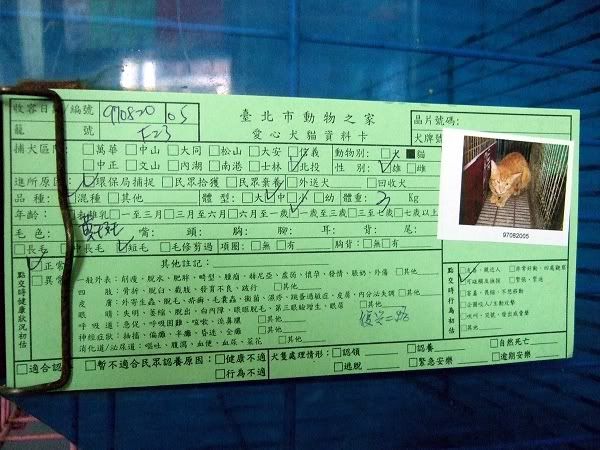 收容日期/編號 970820 05
臺北市動物之家
晶片號碼:
籠 號 F23
愛心犬貓資料卡
犬牌號
捕犬區 □萬華 □中山 □大同 □松山 □大安 □信義 動物別: □犬 ■貓
□中正 □文山 □內湖 □南港 □士林 □北投 性 別: □雄 □雌
進所原因: □環保局捕捉 □民眾拾獲 □民眾棄養 □外送犬 □回收犬
品 種: □混種 □其他 體 型: □大 □中 □小 □幼 體重: 3 Kg
年齡: □未離乳 □一至三月 □三月至六月 □六月至一歲 □一歲至三歲 □三至七歲 □七歲以上
毛 色: 嘴: 頭: 胸: 腳: 耳: 背: 尾:
□長毛 □中長毛 □短毛 □毛修剪過 項圈: □無 □有 胸背: □無 □有
點交時健康狀況初估
□正常
□異常
其他註記:
一般外表: 削瘦、脫水、肥胖、畸型、腫瘤、赫尼亞、虛弱、懷孕、發情、脹奶、外傷 □其他
四 肢: 骨折、脫臼、截肢、發育不良、跛行 □其他
皮 膚: 外寄生蟲、脫毛、疥癬、毛囊蟲、黴菌、濕疹、跳蚤過敏症、皮屑、內分泌失調 □其他
眼 睛: 失明、萎縮、脫出、白內障、眼瞼脫毛、第三眼瞼增生、眼屎 □其他
呼吸道: 急促、呼吸困難、咳嗽、流鼻膿 □其他
神經症狀: 抽搐、偏癱、半癱、昏迷、全癱 □其他
消化道/泌尿道: 嘔吐、腹瀉、血便、血尿、菜花 □其他
復興二路
點交時行為初估
97082005
□適合認養 □暫不適合民眾認養原因: □健康不適 □行為不同
犬隻處理情形: □認領 □認養 □自然死亡
□逃脫 □緊急安樂 □逾期安樂